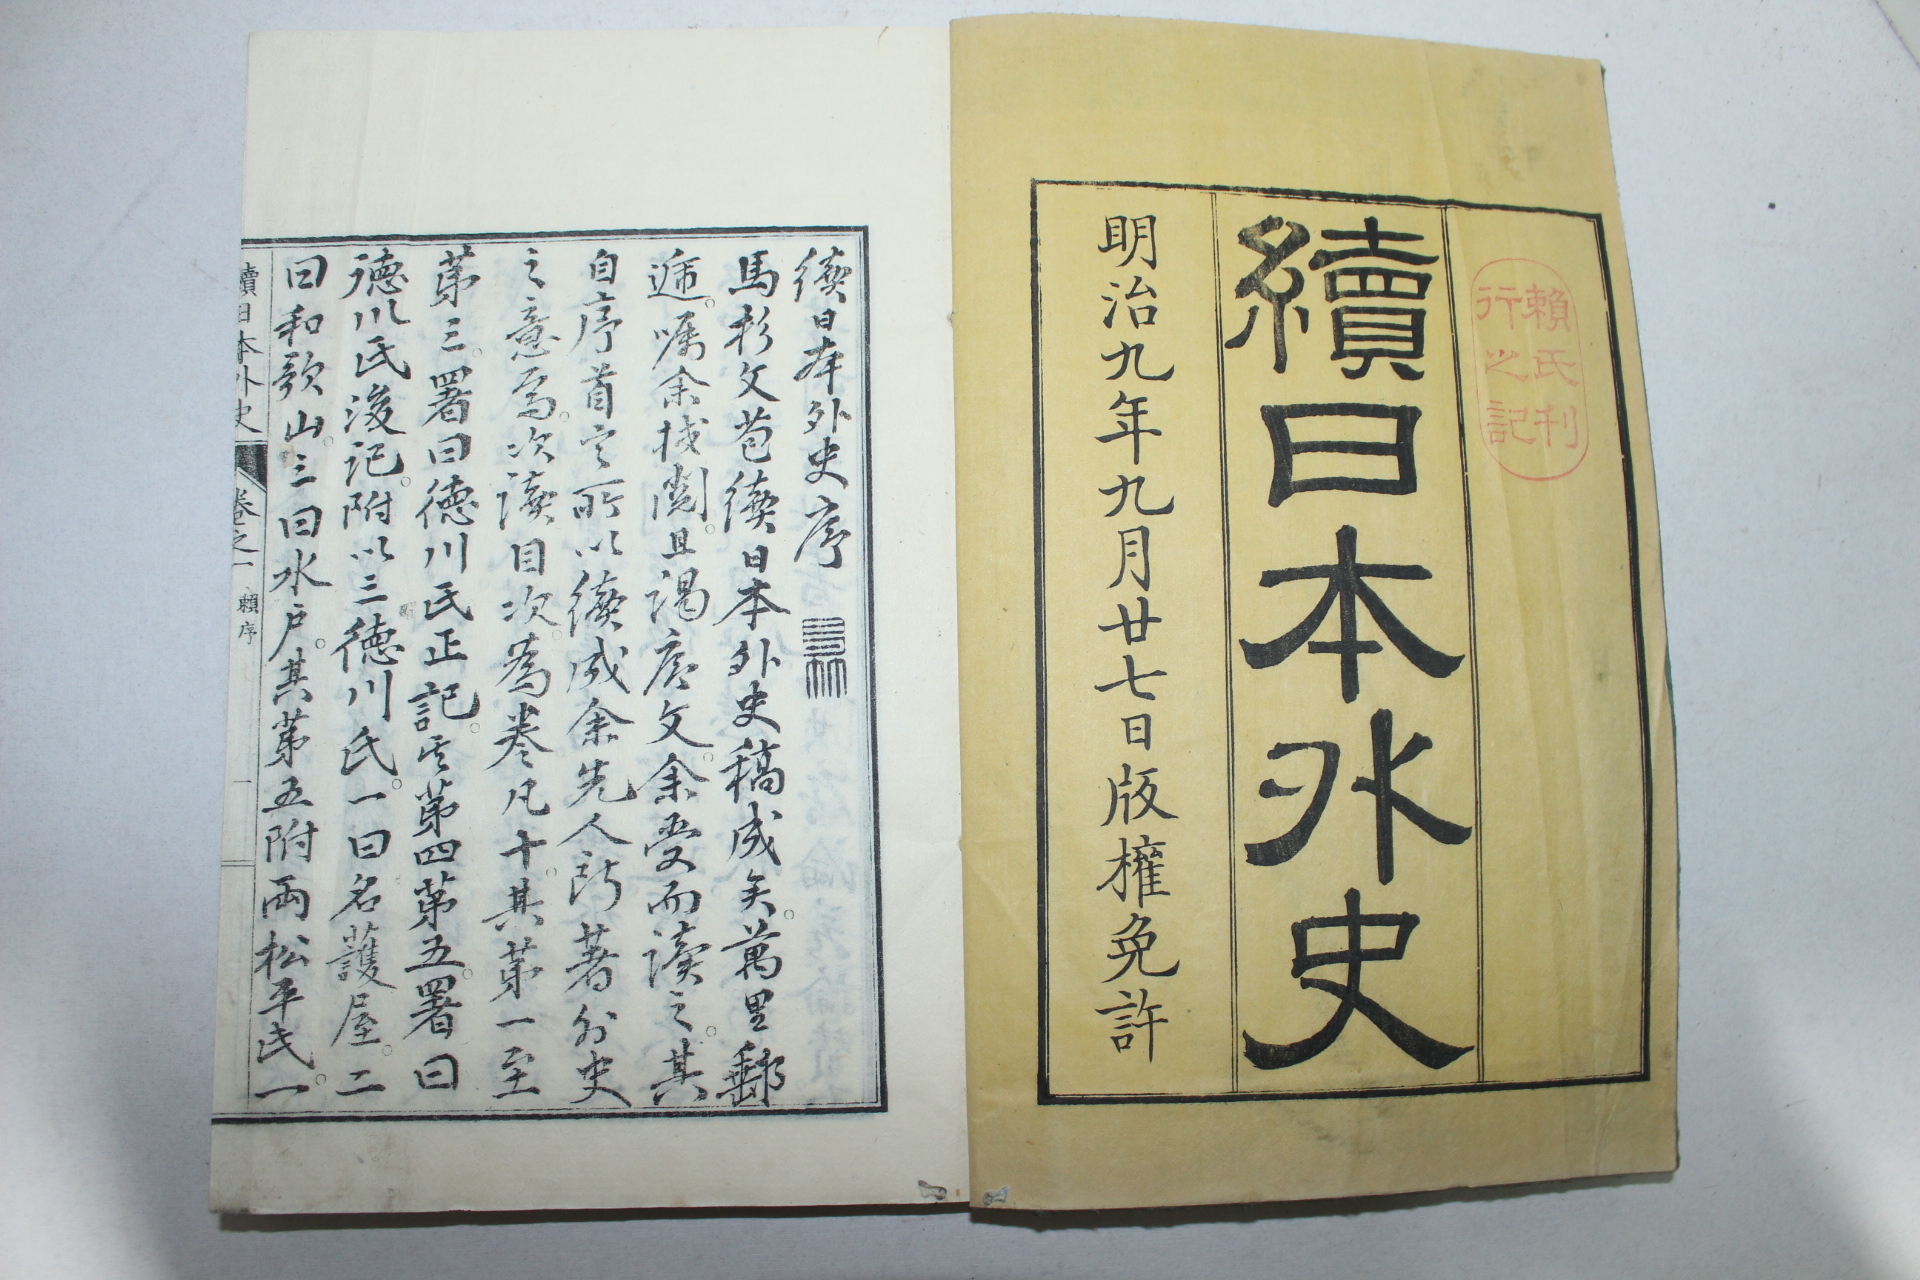 賴氏刊
行之記
續日本外史
明治九年九月廿七日版權免許
續日本外史序
馬杉文苞續日本外史稿成矣。萬里郵
遞。嘱余校閲。且謁序文。余受而讀之。其
自序首言所以續成余先人所著外史
之意焉。次讀目次。為巻凡十。其第一至
第三。署曰德川氏正記。云第四第五。署曰
德川氏後記。附以三德川氏。一曰名護屋。二
曰和歌山。三曰水戸。其第五附兩松平氏。一
續日本外史
卷之一
賴序
一